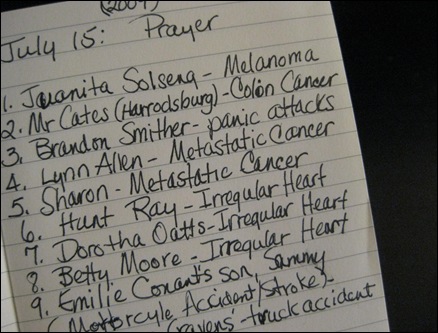 (2009)
July 15: Prayer
1. Jauanita Solseng - Melanoma
2. Mr Cates (Harrodsburg) - Colon Cancer
3. Brandon Smither - panic attacks
4. Lynn Allen - Metastatic Cancer
5. Sharon - Metastatic Cancer
6. Hunt Ray - Irregular Heart
7. Dorotha Oatts - Irregular Heart
8. Betty Moore - Irregular Heart
9. Emilie Conant's son, Sammy
(Mottorcyle Accident/Stroke) -
truck accident